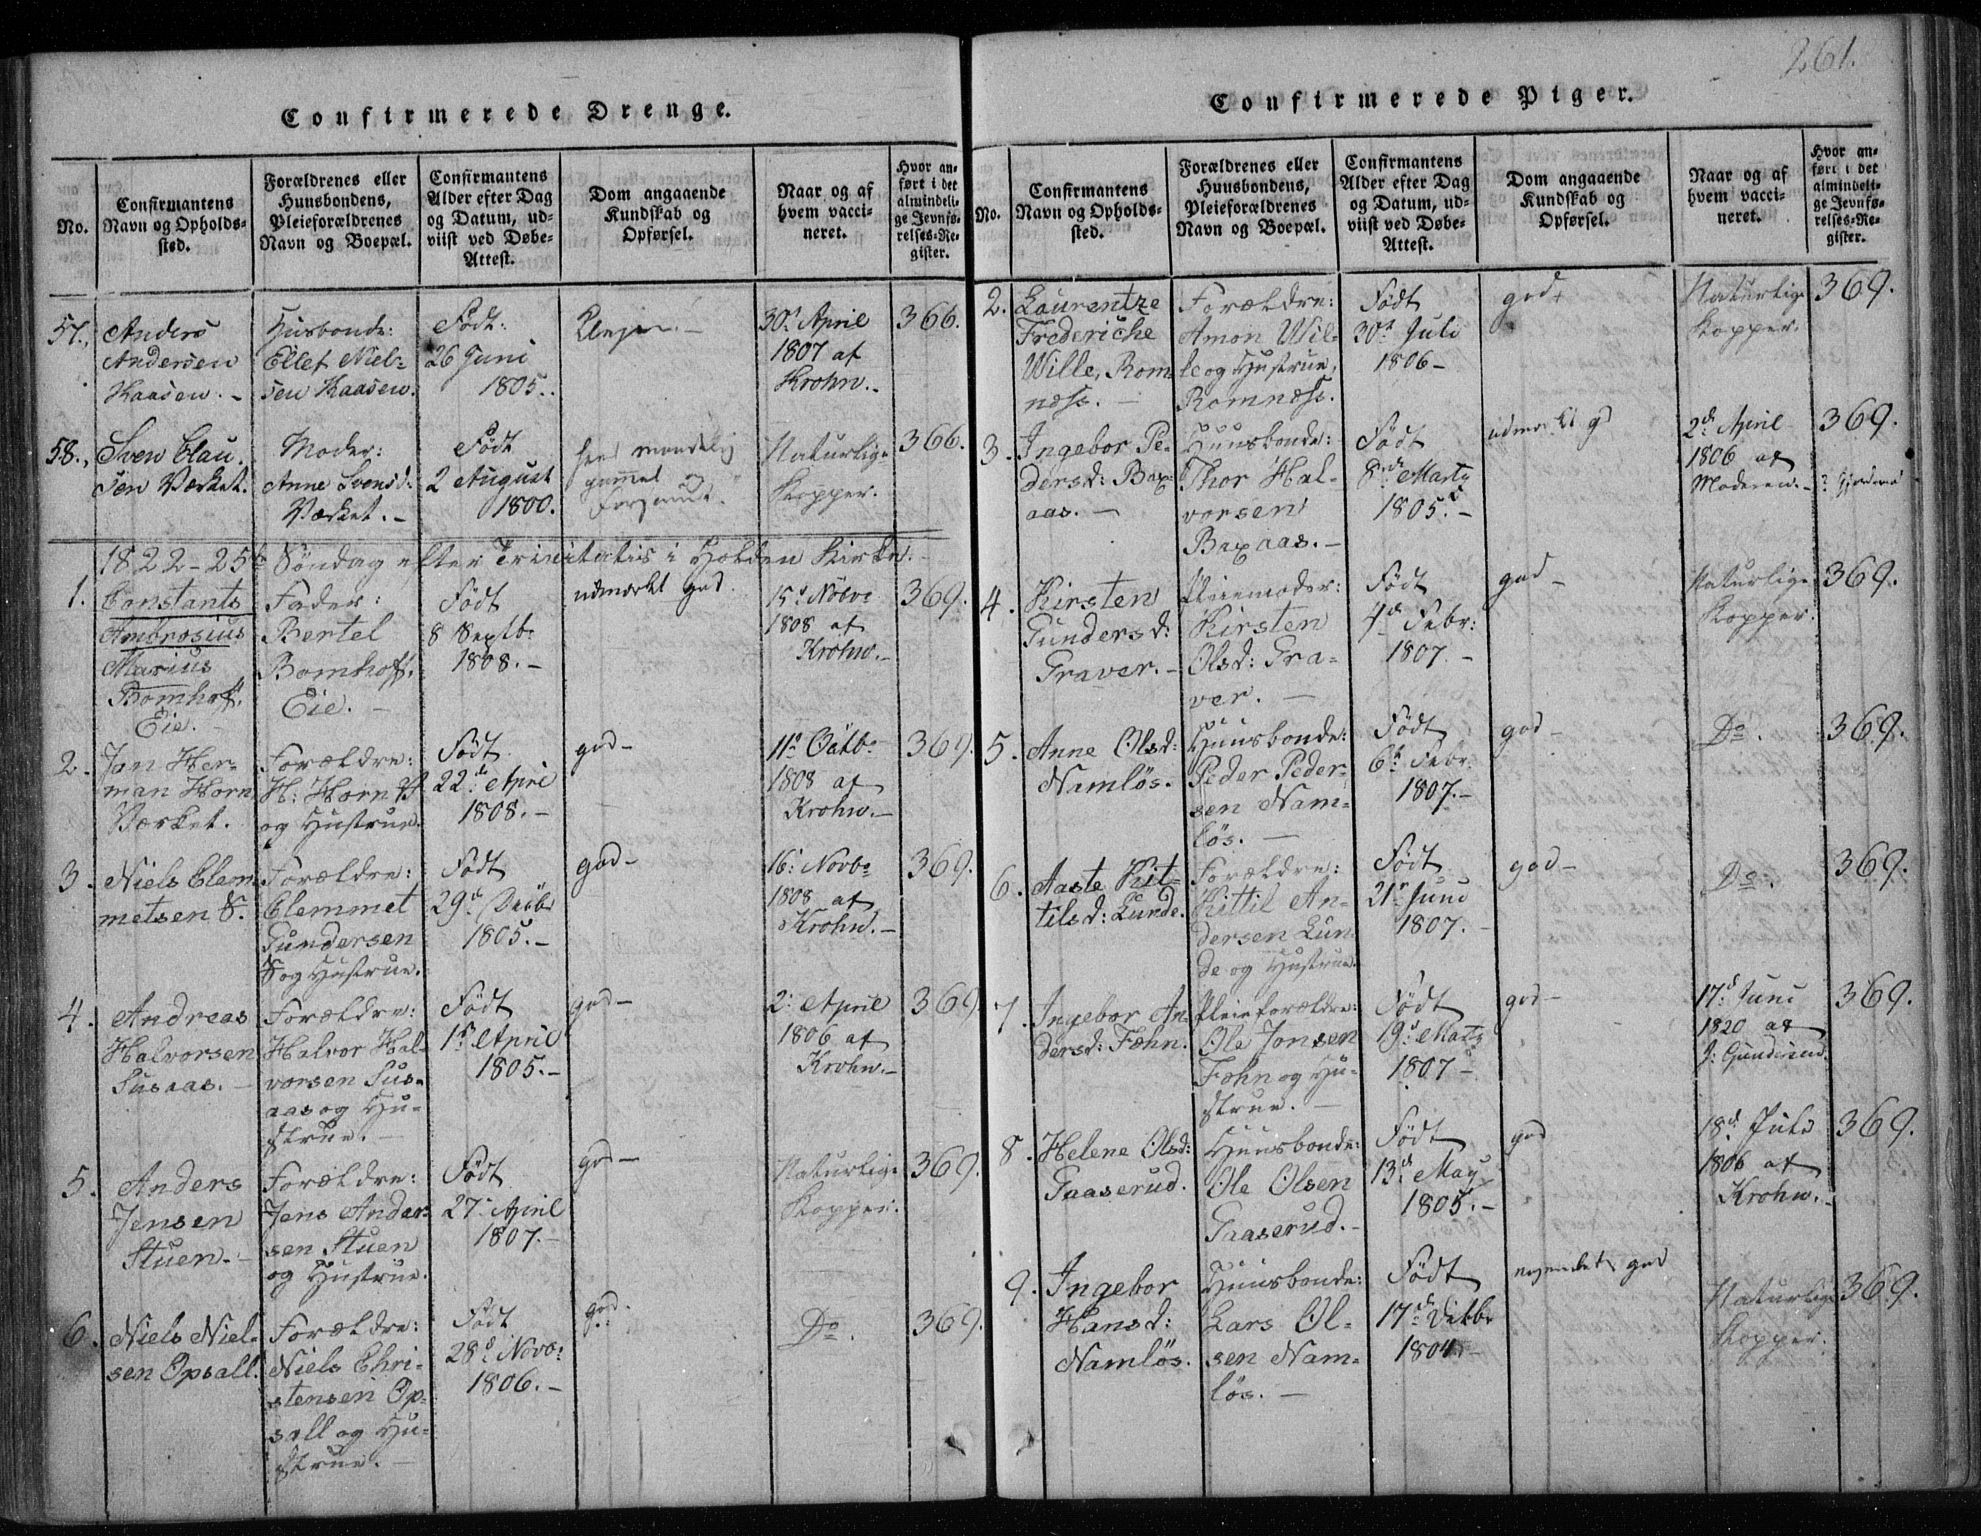 261.
Confirmerede Drenge.
No.
Confirmantens
Navn og Opholds-
sted.
Forældrenes eller
Huusbondens,
Pleieforældrenes
Navn og Boepæl.
Confirmantens
Alder efter Dag
og Datum, ud-
viist ved Døbe-
Attest.
Dom angaaende
Kundskab og
Opførsel.
Naar og af
hvem vacci-
neret.
Hvor an-
ført i det
almindeli-
ge Jevnfø-
relses-Re-
gister.
57.
Anders
Andersen
Kaasen.
Husbonde:
Ellef Niel-
sen Kaasen.
Født
26 Juni
1805.
30te April
1807 af
Krohn.
366.
58.
Sven Clau-
sen Værket.
Moder:
Anne Svensd:
Værket.
Født
2 August
1800.
gammel og
Naturlige
Kopper.
366.
1822 - 25de Søndag efter Trinitatis i Holden Kirke.
1.
Constants
Ambrosius
Marius
Bomhoff.
Eie.
Fader:
Bertel
Bomhoff.
Eie.
Født
8 Septb:
1808.
udmærket god.
15d Novbr
1808 af
Krohn.
369.
2.
Jan Her-
man Horn
Værket.
Forældre:
H: Horn
og Hustrue.
Født
22de April
1808.
god
11te Octb:
1808 af
Krohn.
369.
3.
Niels Clem-
metsen S.
Forældre:
Clemmet
Gundersen
S og Hustrue.
Født
29d
1805.
god
16: Novb:
1808 af
Krohn.
369.
4.
Andreas
Halvorsen
Susaas.
Forældre:
Halvor Hal-
vorsen Sus-
aas og Hu-
strue.
Født
1te April
1805.
god
2: April
1806 af
Krohn.
369.
5.
Anders
Jensen
Stuen.
Forældre:
Jens Ander-
sen Stuen
og Hustrue.
Født
27: April
1807.
god
Naturlige
Kopper.
369.
6.
Niels Niel-
sen Opsall.
Forældre:
Niels Chri-
stensen Op-
sall og Hu-
strue.
Født
28d Novb:
1806.
god.
Do.
369.
Confirmerede Piger.
No.
Confirmantens
Navn og Opholds-
sted.
Forældrenes eller
Huusbondens,
Pleieforældrenes
Navn og Boepæl.
Confirmantens
Alder efter Dag
og Datum, ud-
viist ved Døbe-
Attest.
Dom angaaende
Kundskab og
Opførsel.
Naar og af
hvem vacci-
neret.
Hvor an-
ført i det
almindeli-
ge Jevnfø-
relses-Re-
gister.
2.
Laurentze
Frederiche
Wille, Rom-
næss.
Forældre:
Amon Wil-
le og Hustrue,
Romnæss.
Født
30te Juli
1806
god
Naturlige
Kopper.
369.
3.
Ingebor Pe-
dersd: Bax-
aas.
Huusbonde:
Thor Hal-
vorsen
Baxaas.
Født
8de Martz
1805.
2de April
1806 af
Moderen.
369.
4.
Kirsten
Gundersd:
Graver.
Pleiemoder:
Kirsten
Olsd: Gra-
ver.
Født
4de Febr:
1807.
god
Naturlige
Kopper.
369.
5.
Anne Olsd:
Namløs.
Huusbonde:
Peder Peder-
sen Nam-
løs.
Født
6te Febr.
1807.
god
Do.
369.
6.
Aaste Kit-
tilsd: Lunde.
Forældre:
Kittil An-
dersen Lun-
de og Hustrue.
Født
21de Juni
1807.
god
Do.
369.
7.
Ingebor An-
dersd: Fæhn.
Pleieforældre:
Ole Jonsen
Fæhn og Hu-
strue.
Født
19d Matz
1807
god
17d Juni
1820 af
J: Gundersen.
369.
8.
Helene Olsd:
Gaaserud.
Huusbonde:
Ole Olsen
Gaaserud.
Født
13de May
1805.
god
18d Juli
1806 af
Krohn.
369.
9.
Ingebor
Hansd:
Namløs.
Huusbonde:
Lars Ol-
sen Nam-
løs.
Født
17de
1804.
god
Naturlige
Kopper.
369.